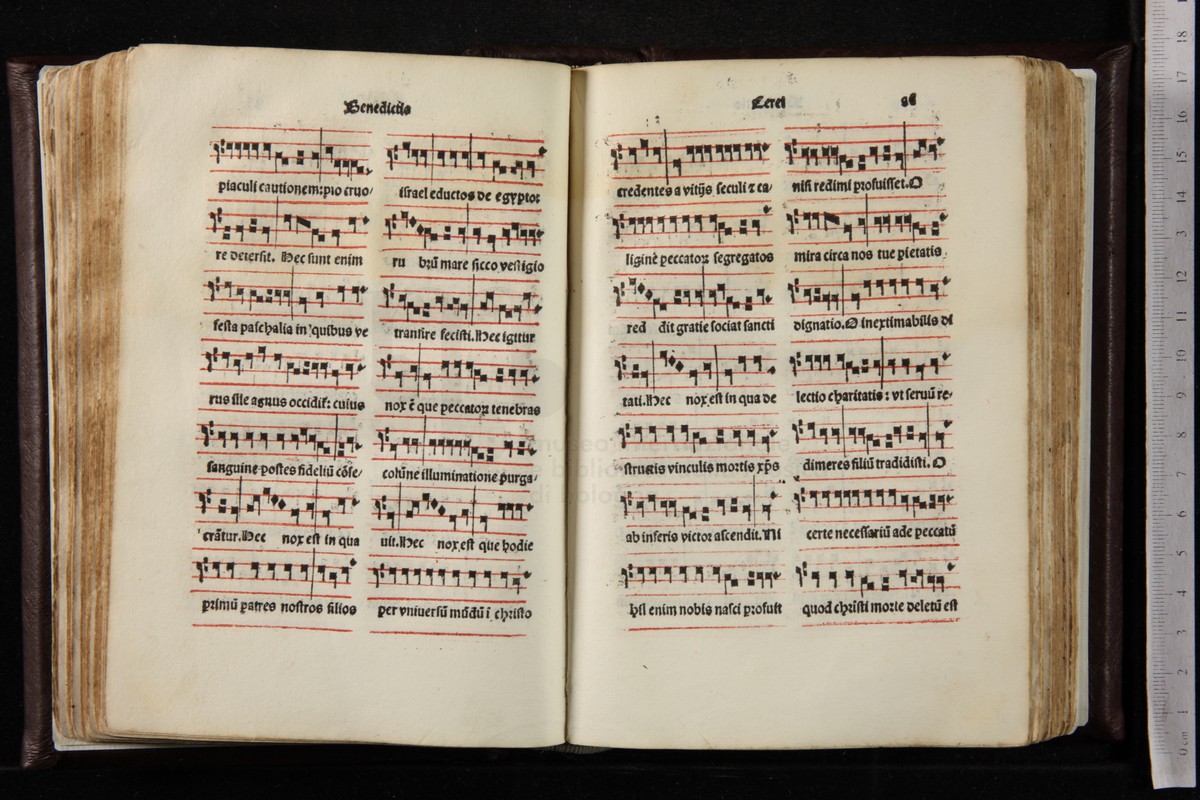 Benedictio
piaculi cautionem:pio cruo/
re detersit. Hec sunt enim
festa paschalia in quibus ve
rus ille agnus occidit: cuius
sanguine postes fideliũ cõse/
crãtur.Hec nox est in qua
primũ patres nostros filios
israel eductos de egypto:
ru brũ mare sicco vestigio
transire fecisti.Hec igitur
nox ẽ que peccatoꝝ tenebras
colũne illuminatione purga/
uit.Hec nox est que hodie
per vniuersũ mũdũ ĩ christo
Cerei
credentes a vitijs seculi ⁊ ca/
ligine peccatoꝝ segregatos
red dit gratie sociat sancti
tati.Hec nox est in qua de
structis vinculis mortis xp̃s
ab inferis victor ascendit.Ni
hil enim nobis nasci profuit
nisi redimi profuisset.O
mira circa nos tue pietatis
dignatio.O inextimabilis di
lectio charitatis: vt seruũ re/
dimeres filiũ tradidisti.O
certe necessariũ ade peccatũ
quod christi morte deletũ est
museo
biblio
di bolo
0 cm 1 2 3 4 5 6 7 8 9 10 11 12 13 14 15 16 17 18